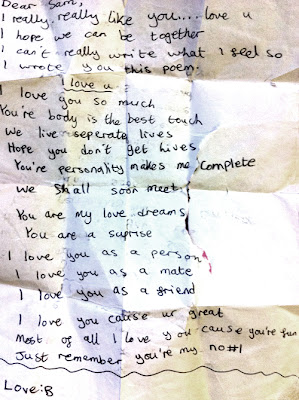 Dear Sam,
I really really like you.... love u
I hope we can be together
I can't really write what I feel so
I wrote you this poem.
I love u
I love you so much
You're body is the best touch
we live seperate lives
Hope you don't get hives
You're personality makes me complete
we shall soon meet
You are my love dreams
You are a suprise
I love you as a person
I love you as a mate
I love you as a friend
I love you cause ur great
Most of all I love you cause you're fun
Just remember you're my no#1
Love:B